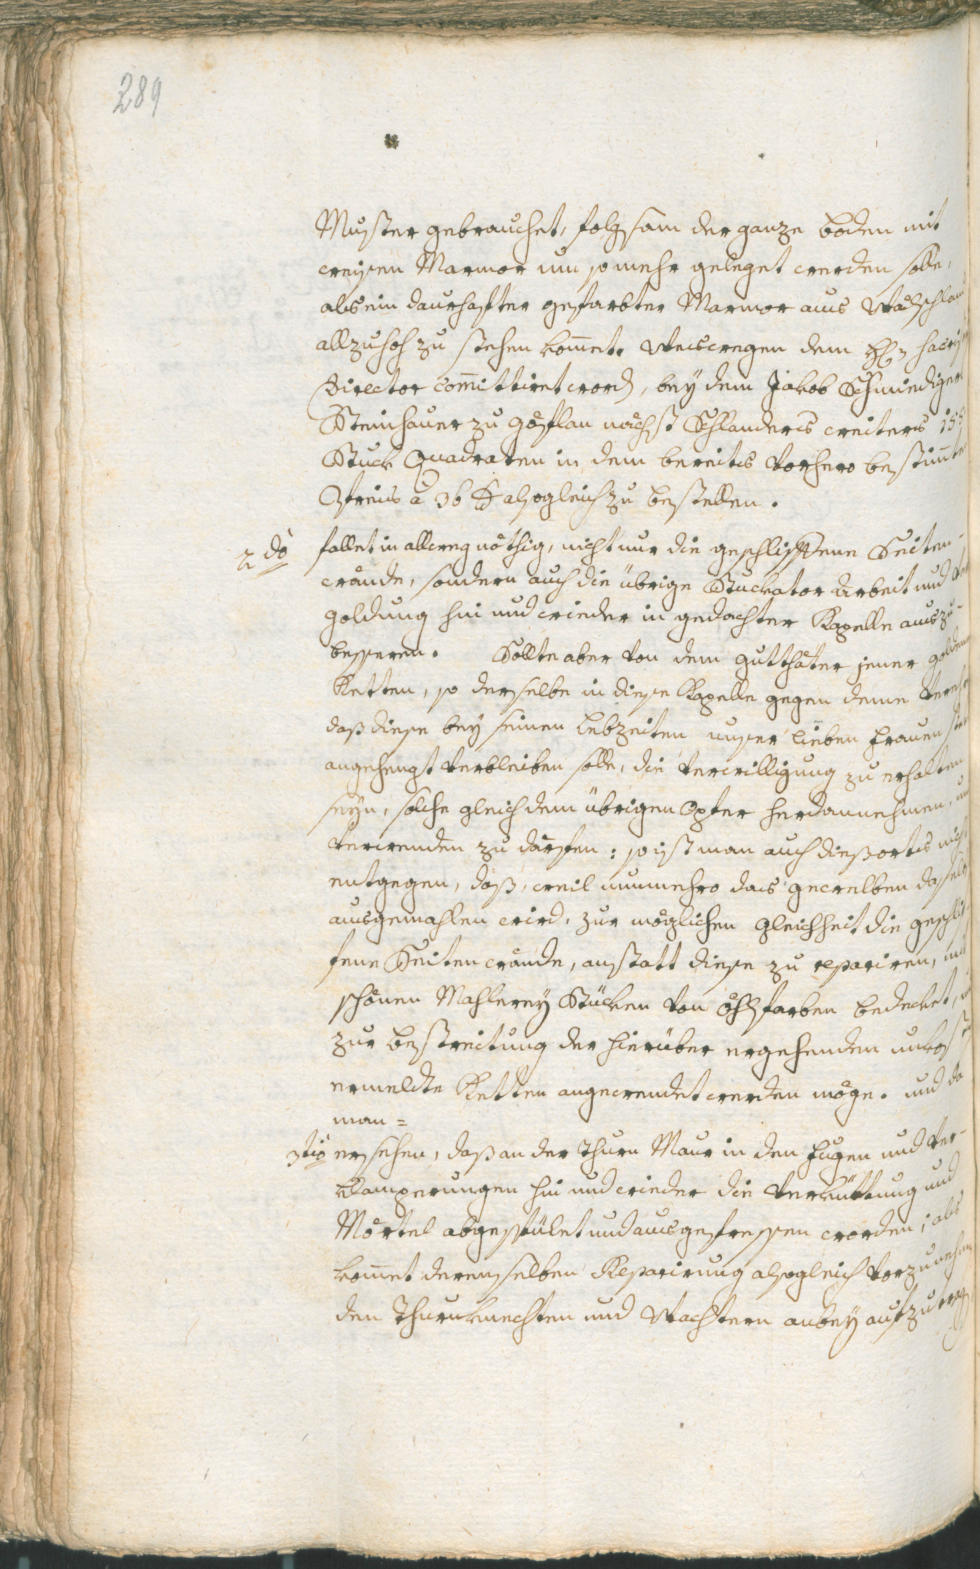 289
Muster gebrauchet, folgsam der ganze Boden mit
weissen Marmor um so mehr geleget werden solle,
als ein daurhafter gefarbter Marmor aus Wälschland
allzuhoch zu stehen kommet. Weswegen dem H:
Director committiret word, bey dem Jakob Schmidiger
Steinhauer zu Göflan nächst Schlanders weiters 15
Stuck Quadraten in dem bereits vorhero bestimten
Preis à 36 x alsogleich zu bestellen.
2do fallet in allweg nöthig, nicht nur die geschlissene Seiten-
wände, sondern auch die übrige Stuckator Arbeit und Ver
goldung hin und wieder in gedachter Kapelle auszu-
besseren. Sollte aber von dem Gutthäter jener goldenen
Ketten, so derselbe in diese Kapelle gegen deme
daß diese bey seinen Lebzeiten unser lieben Frauen
angehengt verbleiben solle, die Verwilligung zu erhalten
seyn, solche gleich dem übrigen Opfer herdannehmen, und
verwenden zu därfen: so ist man auch diesorts nicht
entgegen, daß, weil nunmehro das Gewelben daselbst
ausgemahlen wird, zur möglichen Gleichheit die geschlis-
sene Seitenwände, anstatt diese zu repariren, mit
schönen Mahlerey Stücken von Öhlfarben bedecket,
zur Bestreitung der hierüber ergehenden Unkosten
ermeldte Ketten angewendet werden möge. Und da
man =
3tio ersehen, daß an der Thurn Maur in den Fugen und Ver-
klamperungen hin und wieder die Verküttung und
Mörtel abgespület und ausgefressen worden; als
kommet derenselben Reparirung alsogleich vorzunehmen
den Thurnknechten und Wachtern anbey aufzutragen